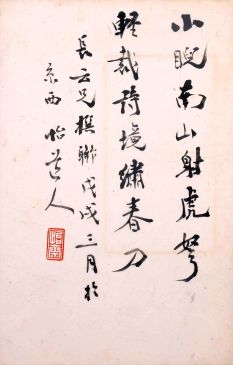 小睨南山射虎弩
輕裁詩境繡春刀
長云兄撰聯戊戌三月於
京西 怡道人